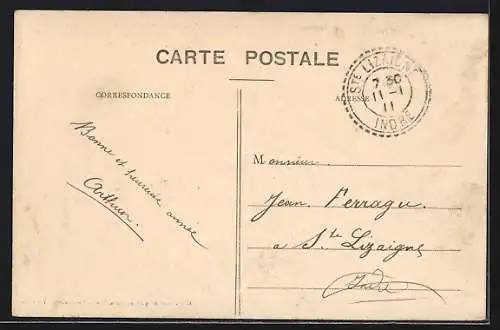 CARTE POSTALE
CORRESPONDANCE
ADRESSE
STE LIZAIGNE
7 30
11 - 1
11
INDRE
Bonne et heureuse année
Arthur.
Monsieur
Jean Perragu.
a Ste Lizaigne
Indre